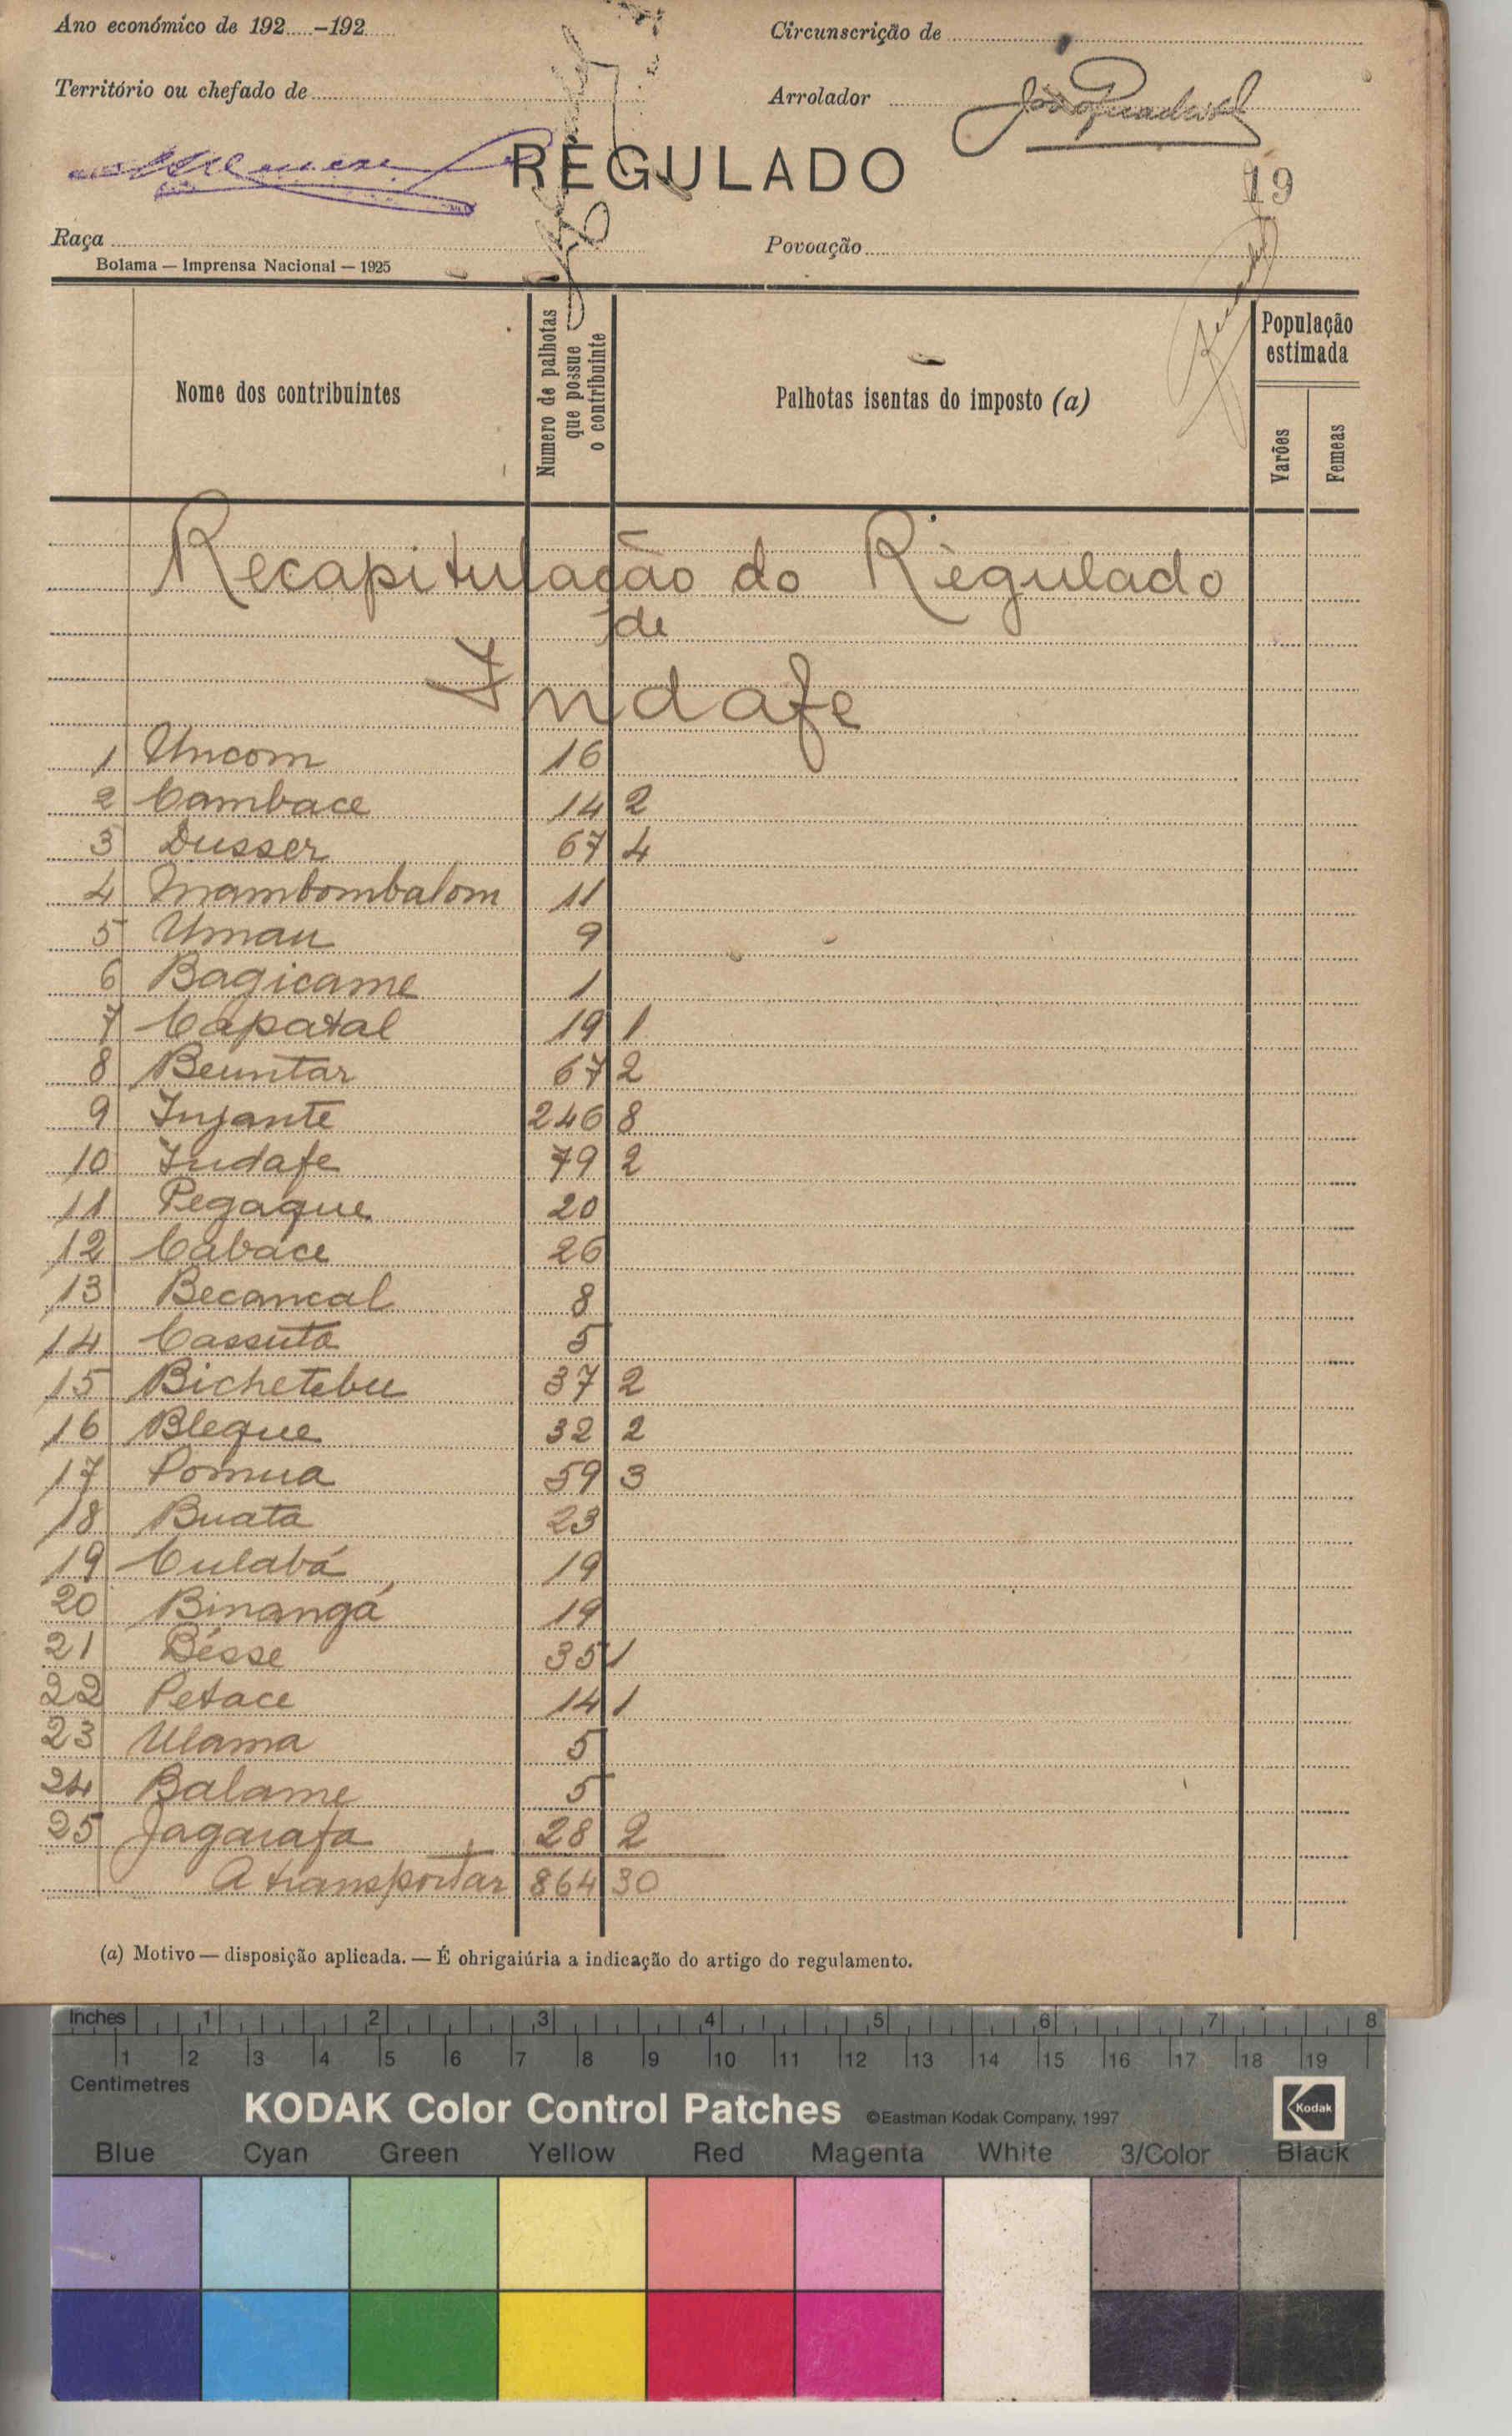 Ano económico de 192.....-192.....
Circunscrição de
Território ou chefado de
Arrolador
REGULADO
19
Raça
Povoação
Bolama — Imprensa Nacional — 1925
Nome dos contribuintes
Numero de palhotas que possue o contribuinte
Palhotas isentas do imposto (a)
População estimada
Varões
Femeas
Recapitulação do Règulado
de
Indafe
1 Uncom 16
2 Cambace 14 2
3 Dusser 67 4
4 Mambombalom 11
5 Uman 9
6 Bagicame 1
7 Capatal 19 1
8 Beuntar 67 2
9 Injante 246 8
10 Indafe 79 2
11 Pegaque 20
12 Cabace 26
13 Becancal 8
14 Cassuta 5
15 Bichetebu 37 2
16 Bleque 32 2
17 Pomua 59 3
18 Buata 23
19 Culabá 19
20 Binangá 19
21 Bésse 35 1
22 Petace 14 1
23 Ulama 5
24 Balame 5
25 Jagarafa 28 2
A transportar 864 30
(a) Motivo — disposição aplicada. — É obrigaiúria a indicação do artigo do regulamento.
Inches 1 2 3 4 5 6 7 8
1 2 3 4 5 6 7 8 9 10 11 12 13 14 15 16 17 18 19
Centimetres
KODAK Color Control Patches ©Eastman Kodak Company, 1997 Kodak
Blue Cyan Green Yellow Red Magenta White 3/Color Black